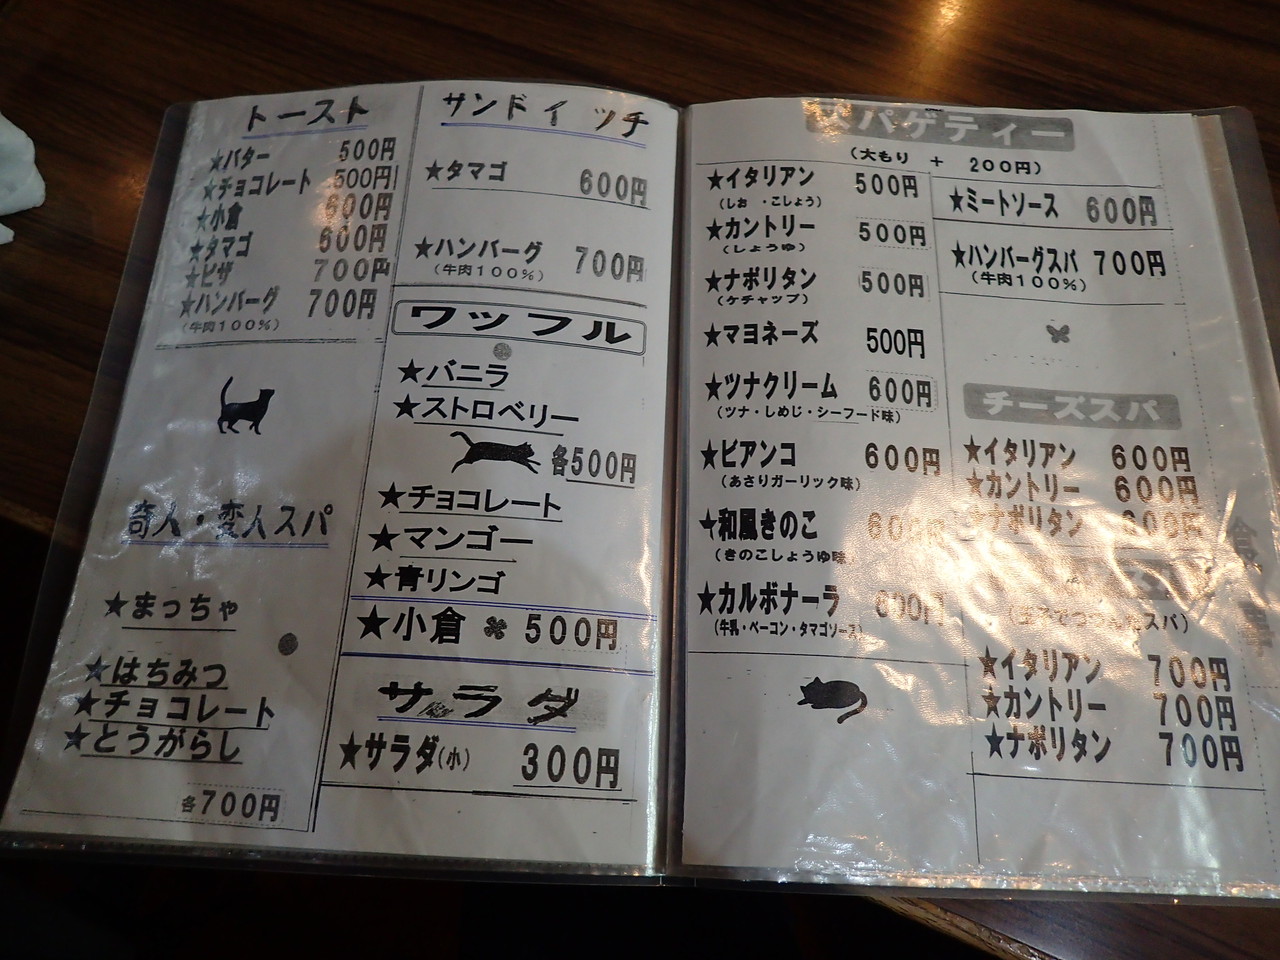 トースト
★バター 500円
★チョコレート 500円
★小倉 600円
★タマゴ 600円
★ピザ 700円
★ハンバーグ 700円
(牛肉100%)
奇人・変人スパ
★まっちゃ
★はちみつ
★チョコレート
★とうがらし
各700円
サンドイッチ
★タマゴ 600円
★ハンバーグ 700円
(牛肉100%)
ワッフル
★バニラ
★ストロベリー
各500円
★チョコレート
★マンゴー
★青リンゴ
★小倉 500円
サラダ
★サラダ(小) 300円
スパゲティー
(大もり + 200円)
★イタリアン 500円
(しお・こしょう)
★カントリー 500円
(しょうゆ)
★ナポリタン 500円
(ケチャップ)
★マヨネーズ 500円
★ツナクリーム 600円
(ツナ・しめじ・シーフード味)
★ビアンコ 600円
(あさりガーリック味)
★和風きのこ 600円
(きのこしょうゆ味
★カルボナーラ 600円
(牛乳・ベーコン・タマゴソース)
★ミートソース 600円
★ハンバーグスパ 700円
(牛肉100%)
チーズスパ
★イタリアン 600円
★カントリー 600円
★ナポリタン 600円
スパ)
★イタリアン 700円
★カントリー 700円
★ナポリタン 700円
食事